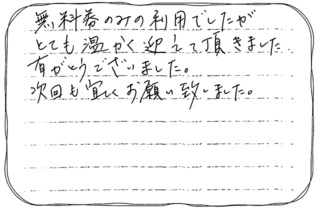 無料券のみの利用でしたが
とても温かく迎えて頂きました
有がとうございました。
次回も宜しくお願い致しました。